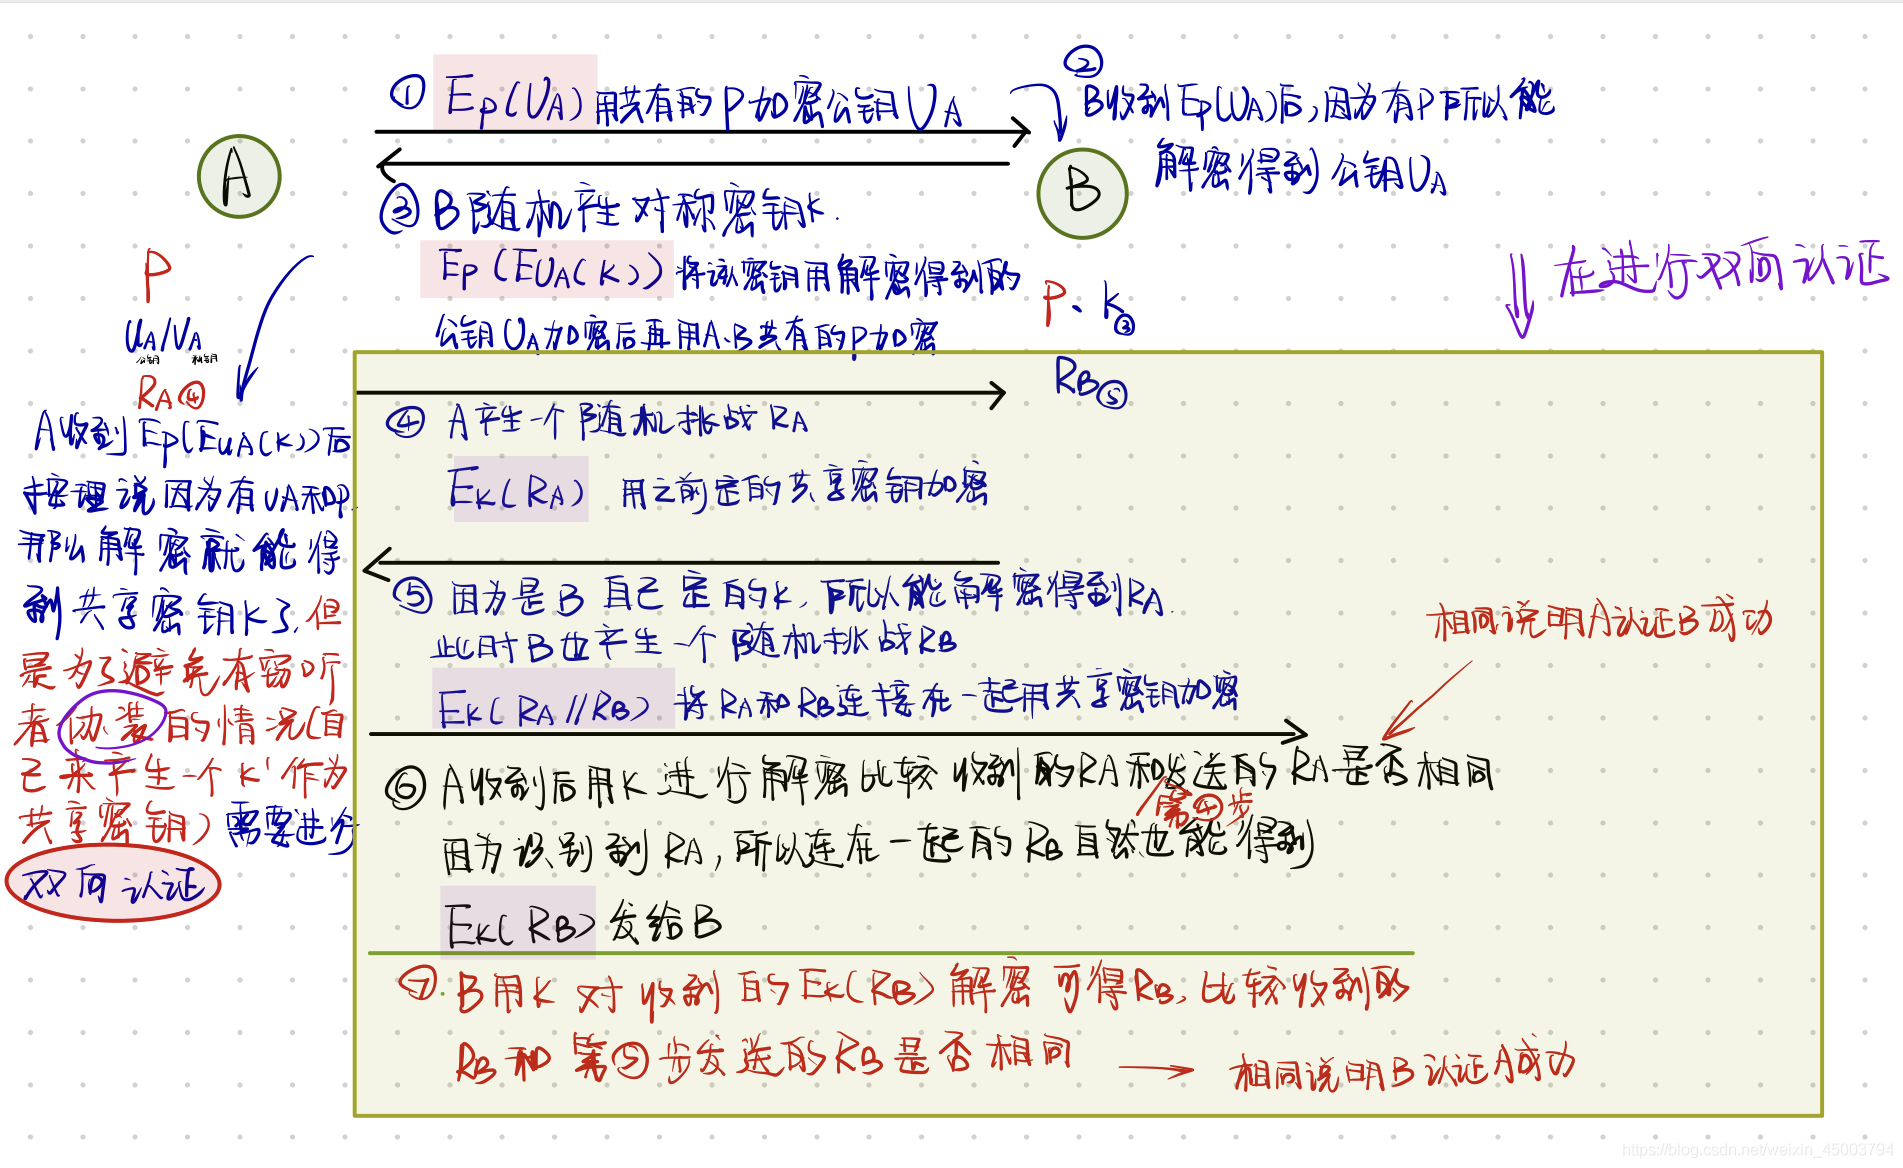 ① Ep(UA) 用共有的P加密公钥UA
②
B收到Ep(UA)后,因为有P所以能
解密得到公钥UA
A
B
③ B随机产生对称密钥K.
Ep(EUA(K)) 将该密钥用解密得到的
公钥UA加密后再用A、B共有的P加密
P
UA/VA
公钥 私钥
RA④
P、K③
RB⑤
在进行双向认证
A收到Ep(EUA(K))后
按理说因为有UA和P,
那么解密就能得
到共享密钥K了,但
是为了避免有窃听
者伪装的情况(自
己来产生一个K'作为
共享密钥)需要进行
双向认证
④ A产生一个随机挑战RA
EK(RA) 用之前定的共享密钥加密
⑤ 因为是B自己定的K,所以能解密得到RA.
此时B也产生一个随机挑战RB
EK(RA//RB) 将RA和RB连接在一起用共享密钥加密
相同说明A认证B成功
⑥ A收到后用K进行解密比较收到的RA和发送的RA是否相同
第④步
因为识别到RA,所以连在一起的RB自然也能得到
EK(RB)发给B
⑦. B用K对收到的EK(RB)解密可得RB,比较收到的
RB和第⑤步发送的RB是否相同
相同说明B认证A成功
https://blog.csdn.net/weixin_45003794